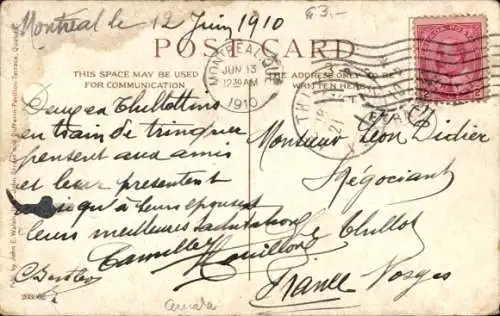 Montréal le 12 Juin 1910
63.-
POST CARD
MONTREAL
JUN 13
12 30 AM
1910
THIS SPACE MAY BE USED
FOR COMMUNICATION
THE ADDRESS ONLY TO BE
WRITTEN HERE
Deux Thillotins
en train de trinquer
pensent aux amis
et leur présentent
ainsi qu'à leurs épouses
leurs meilleures salutations
Camille
Monsieur Léon Didier
Négociant
Le Thillot
France Vosges
Canada